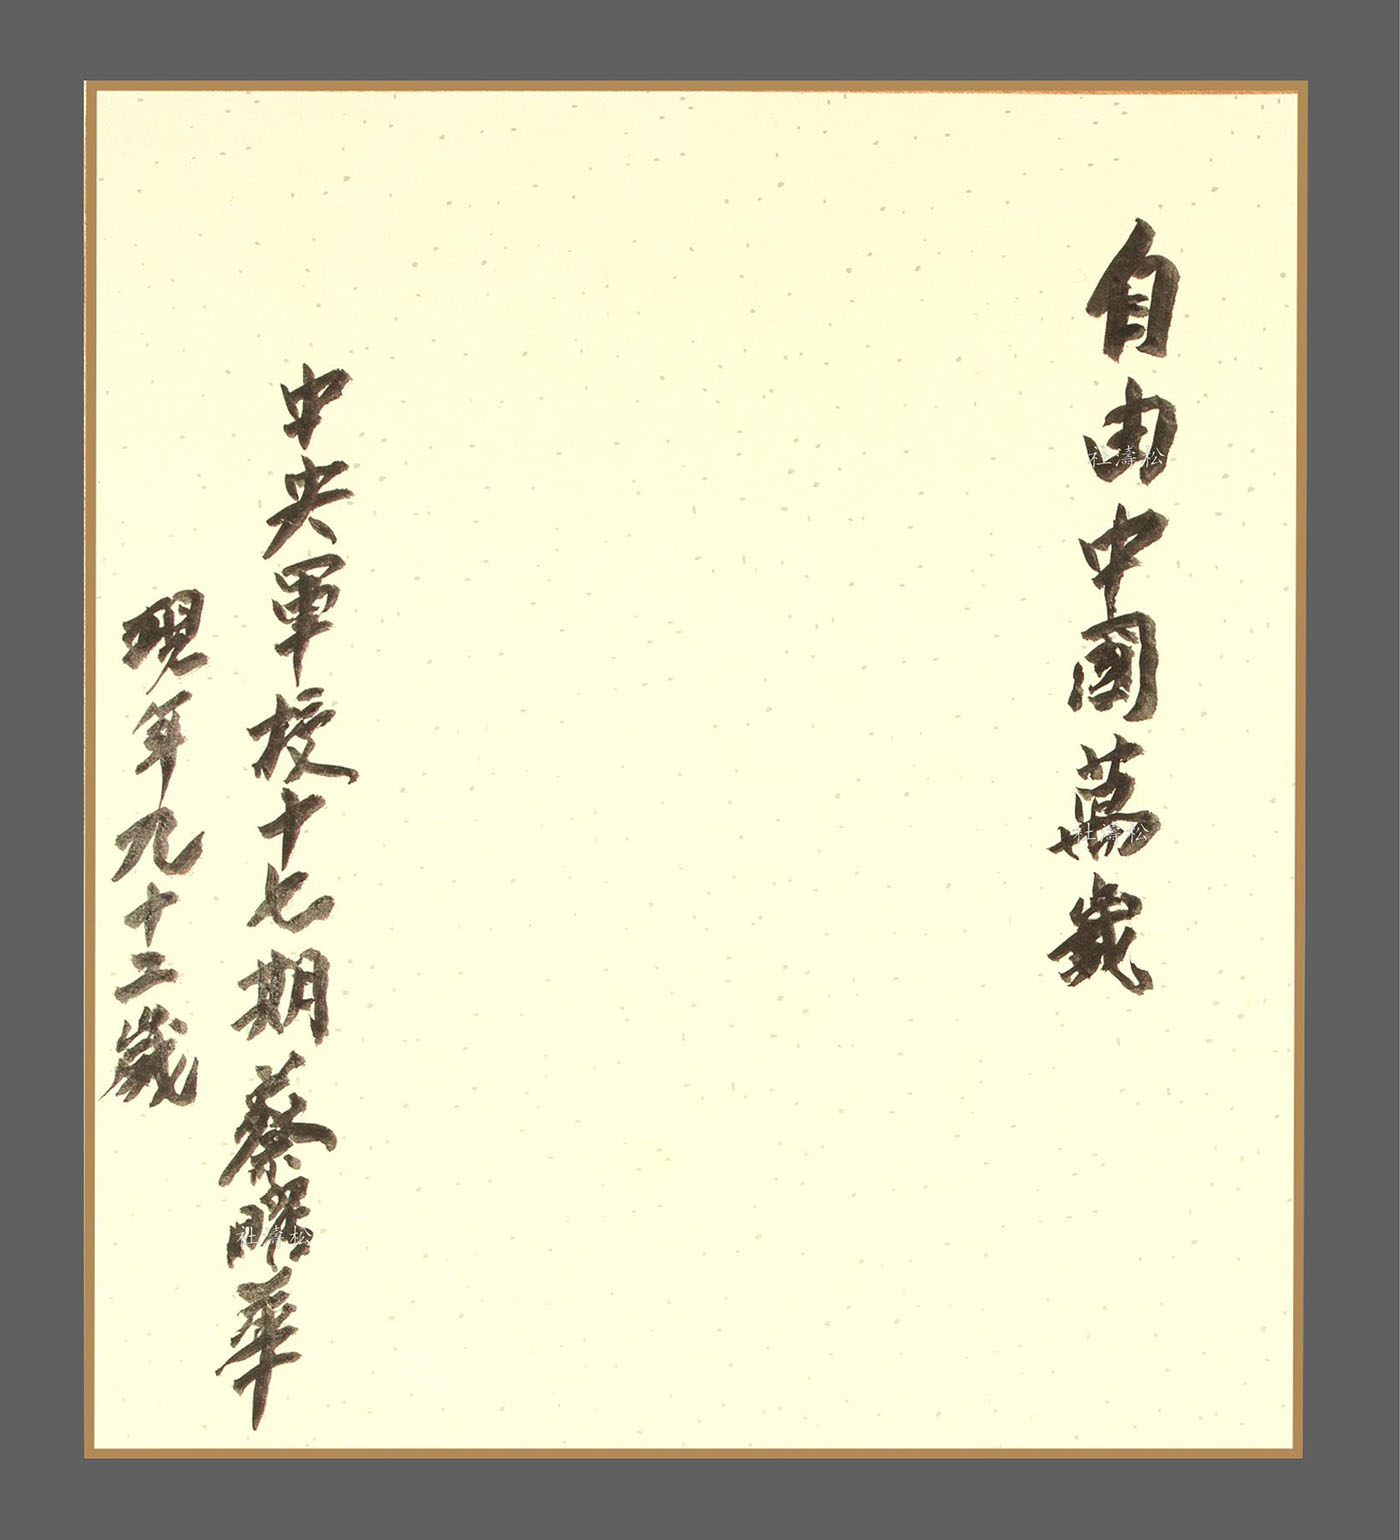 自由中國萬歲
中央軍校十七期蔡曜華
現年九十二歲
松濤社
松濤社
松濤社